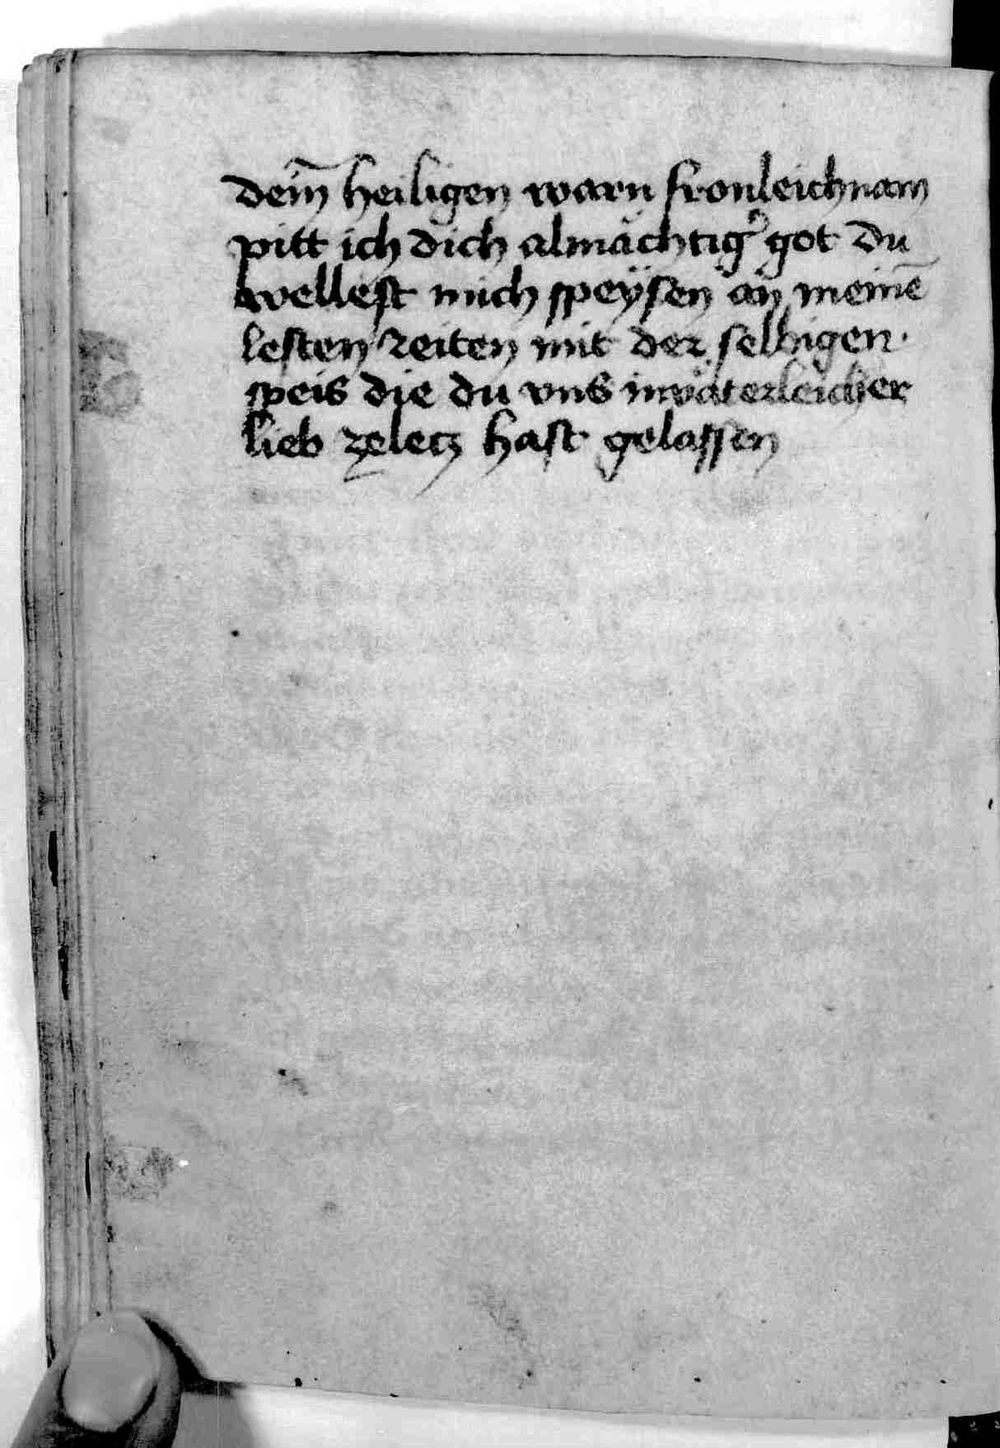 dein̄ heiligen warn fronleichnam
pitt ich dich almächtigˀ got du
wellest mich speÿsen an meinē
lesten zeiten mit der selbigen
speis die du vns in väterleicher
lieb zeletz hast gelassen